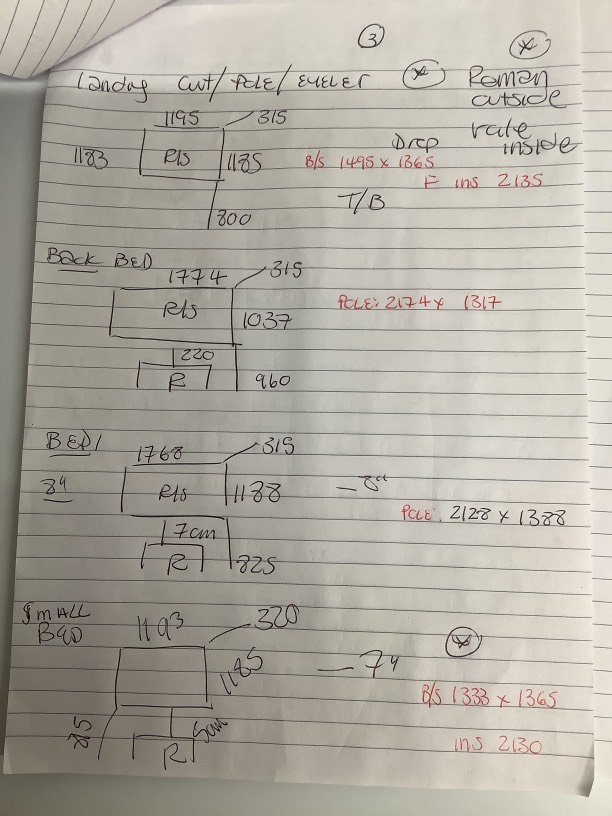 3
Landing Curt/Pole/Eyelet * Roman
outside
rate
inside
1195 315
1183 R/S 1185 B/S 1495 x 1365
Drop
F ins 2135
T/B
800
Back BED
1774 315
R/S 1037 POLE: 2174 x 1317
220
R 960
BED 1
1768 315
8" R/S 1188 - 8"
POLE. 2128 x 1388
7cm
R 825
Small
BED 1193 320
1185 - 7"
B/S 1333 x 1365
815 5cm
R ins 2130